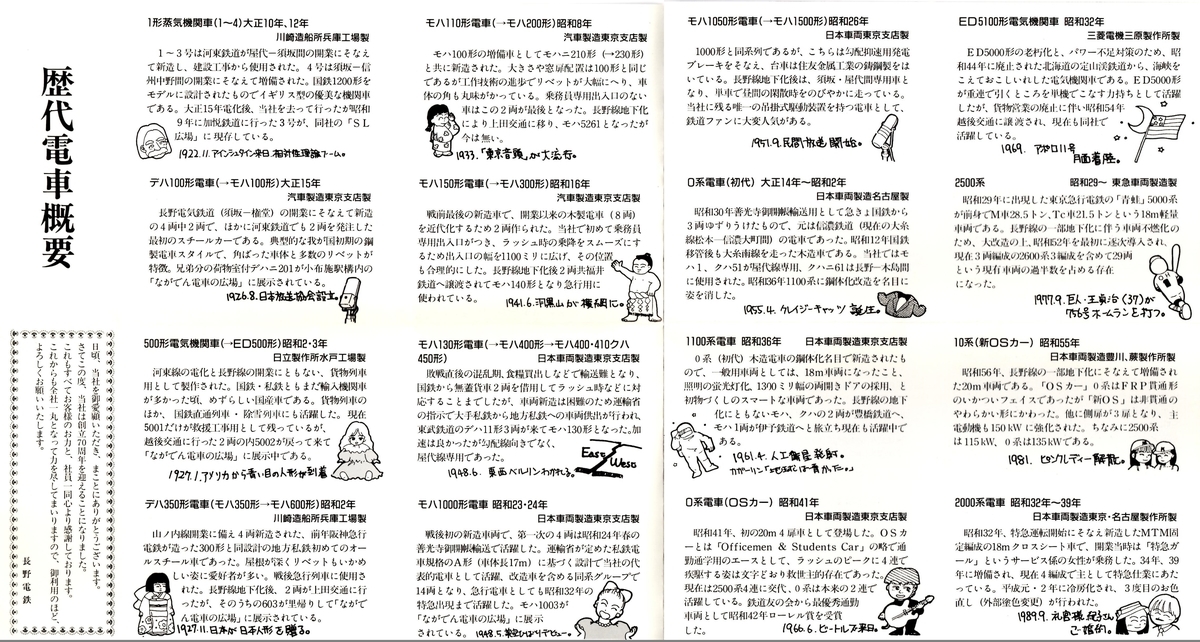 歴代電車概要
日頃、当社を御愛顧いただき、まことにありがとうございます。
さてこの度、当社は創立70周年を迎えることになりました。
これもすべてお客様のお力と、社員一同心より感謝しております。
これからも全社一丸となって力を尽してまいりますので、御利用のほど、
よろしくお願いいたします。
長野電鉄
1形蒸気機関車(1~4)大正10年、12年
川崎造船所兵庫工場製
1~3号は河東鉄道が屋代~須坂間の開業にそなえ
て新造し、建設工事から使用された。4号は須坂~信
州中野間の開業にそなえて増備された。国鉄1200形を
モデルに設計されたものでイギリス型の優美な機関車
である。大正15年電化後、当社を去って行ったが昭和
9年に加悦鉄道に行った3号が、同社の「SL
広場」に現存している。
1922.11.アインシュタイン来日 相対性理論ブーム。
デハ100形電車(→モハ100形)大正15年
汽車製造東京支店製
長野電気鉄道(須坂~権堂)の開業にそなえて新造
の4両中2両で、ほかに河東鉄道でも2両を発注した
最初のスチールカーである。典型的な我が国初期の鋼
製電車スタイルで、角ばった車体と多数のリベットが
特徴。兄弟分の荷物室付デハニ201が小布施駅構内の
「ながでん電車の広場」に展示されている。
1926.8.日本放送協会設立。
500形電気機関車(→ED500形)昭和2・3年
日立製作所水戸工場製
河東線の電化と長野線の開業にともない、貨物列車
用として製作された。国鉄・私鉄ともまだ輸入機関車
が多かった頃、めずらしい国産車である。貨物列車の
ほか、国鉄直通列車・除雪列車にも活躍した。現在
5001だけが救援工事用として残っているが、
越後交通に行った2両の内5002が戻って来て
「ながでん電車の広場」に展示中である。
1927.1.アメリカから青い目の人形が到着
デハ350形電車(モハ350形→モハ600形)昭和2年
川崎造船所兵庫工場製
山ノ内線開業に備え4両新造された、前年阪神急行
電鉄が造った300形と同設計の地方私鉄初めてのオー
ルスチール車である。屋根が深くリベットもいかめ
しい姿に愛好者が多い。戦後急行列車に使用さ
れた。長野線地下化後、2両が上田交通に行
ったが、そのうちの603が里帰りして「ながで
ん電車の広場」に展示されている。
1927.11.日本が日本人形を贈る。
モハ110形電車(→モハ200形)昭和8年
汽車製造東京支店製
モハ100形の増備車としてモハニ210形(→230形)
と共に新造された。大きさや窓扉配置は100形と同じ
であるが工作技術の進歩でリベットが大幅にへり、車
体の角も丸味がかっている。乗務員専用出入口のない
車はこの2両が最後となった。長野線地下化
により上田交通に移り、モハ5261となったが
今は無い。
1933.「東京音頭」が大流行。
モハ150形電車(→モハ300形)昭和16年
汽車製造東京支店製
戦前最後の新造車で、開業以来の木製電車(8両)
を近代化するため2両作られた。当社で初めて乗務員
専用出入口がつき、ラッシュ時の乗降をスムーズにす
るため出入口の幅を1100ミリに広げ、その位置
も合理的にした。長野線地下化後2両共福井
鉄道へ譲渡されてモハ140形となり急行用に
使われている。
1941.6.羽黒山が横綱に。
モハ130形電車(→モハ400形→モハ400・410クハ
450形)
日本車両製造東京支店製
敗戦直後の混乱期、食糧買出しなどで輸送難となり、
国鉄から無蓋貨車2両を借用してラッシュ時などに対
応することまでしたが、車両新造は困難のため運輸省
の指示で大手私鉄から地方私鉄への車両供出が行われ、
東武鉄道のデハ11形3両が来てモハ130形となった。加
速は良かったが勾配線向きでなく、
屋代線専用であった。
East West
1948.6.東西ベルリンわかれる。
モハ1000形電車 昭和23・24年
日本車両製造東京支店製
戦後初の新造車両で、第一次の4両は昭和24年春の
善光寺御開帳輸送で活躍した。運輸省が定めた私鉄電
車規格のA形(車体長17m)に基づく設計で当社の代
表的電車として活躍、改造車を含める同系グループで
14両となり、急行電車としても昭和32年の
特急出現まで活躍した。モハ1003が
「ながでん電車の広場」に展示
されている。
1948.5.美空ひばりデビュー。
モハ1050形電車(→モハ1500形)昭和26年
日本車両東京支店製
1000形と同系列であるが、こちらは勾配抑速用発電
ブレーキをそなえ、台車は住友金属工業の鋳鋼製をは
いている。長野線地下化後は、須坂・屋代間専用車と
なり、単車で昼間の閑散時をのびやかに走っている。
当社に残る唯一の吊掛式駆動装置を持つ電車として、
鉄道ファンに大変人気がある。
1951.9.民間放送開始。
0系電車(初代) 大正14年~昭和2年
日本車両製造名古屋製
昭和30年善光寺御開帳輸送用として急きょ国鉄から
3両ゆずりうけたもので、元は信濃鉄道(現在の大糸
線松本~信濃大町間)の電車であった。昭和12年国鉄
移管後も大糸南線を走った木造車である。当社ではモ
ハ1、クハ51が屋代線専用、クハニ61は長野~木島間
に使用された。昭和36年1100系に鋼体化改造を名目に
姿を消した。
1955.4.クレイジーキャッツ 誕生。
1100系電車 昭和36年
日本車両製造東京支店製
0系(初代)木造電車の鋼体化名目で新造されたも
ので、一般用車両としては、18m車両になったこと、
照明の蛍光灯化、1300ミリ幅の両開きドアの採用、と
初物づくしのスマートな車両であった。長野線の地下
化にともないモハ、クハの2両が豊橋鉄道へ、
モハ1両が伊予鉄道へと旅立ち現在も活躍中で
ある。
1961.4.人工衛星発射。
ガガーリン「地球は青かった。」
0系電車(OSカー) 昭和41年
日本車両製造東京支店製
昭和41年、初の20m4扉車として登場した。OSカ
ーとは「Officemen & Students Car」の略で通
勤通学用のエースとして、ラッシュのピークに4連で
疾駆する姿は文字どおり救世主的存在であった。
現在は2500系4連に交代、0系は本来の2連で
活躍している。鉄道友の会から最優秀通勤
車両として昭和42年ローレル賞を受賞
した。
1966.6.ビートルズ来日。
ED5100形電気機関車 昭和32年
三菱電機三原製作所製
ED5000形の老朽化と、パワー不足対策のため、昭
和44年に廃止された北海道の定山渓鉄道から、海峡を
こえておこしいれした電気機関車である。ED5000形
が重連で引くところを単機でこなす力持ちとして活躍
したが、貨物営業の廃止に伴い昭和54年
越後交通に譲渡され、現在も同社で
活躍している。
1969.アポロ11号
月面着陸。
2500系 昭和29~ 東急車両製造製
昭和29年に出現した東京急行電鉄の「青蛙」5000系
が前身でM車28.5トン、Tc車21.5トンという18m軽量
車両である。長野線の一部地下化に伴う車両不燃化の
ため、大改造の上、昭和52年を最初に逐次導入され、
現在3両編成の2600系3編成を含めて29両
という現有車両の過半数を占める存在
になった。
1977.9.巨人・王貞治(37)が
756号ホームランを打つ。
10系(新OSカー) 昭和55年
日本車両製造豊川、蕨製作所製
昭和56年、長野線の一部地下化にそなえて増備され
た20m車両である。「OSカー」0系はFRP貫通形
のいかついフェイスであったが「新OS」は非貫通の
やわらかい形にかわった。他に側扉が3扉となり、主
電動機も150kWに強化された。ちなみに2500系
は115kW、0系は135kWである。
1981.ピンクレディー解散。
2000系電車 昭和32年~39年
日本車両製造東京・名古屋製作所製
昭和32年、特急運転開始にそなえ新造したMTM固
定編成の18mクロスシート車で、開業当時は「特急ガ
ール」というサービス係の女性が乗務した。34年、39
年に増備され、現在4編成で主として特急仕業にあた
っている。平成元・2年に冷房化され、3度目のお色
直し(外部塗色変更)が行われた。
1989.9.礼宮様、紀子さん
ご婚約。